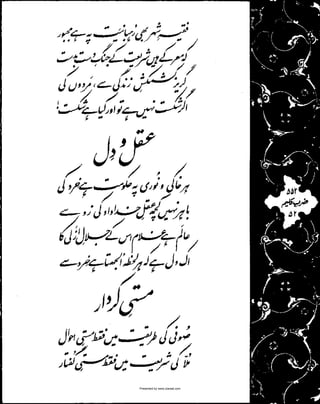 فقیہِ شہر بھی رہبانیت پہ ہے مجبور
کہ معرکے ہیں شریعت کے جنگ دست بدست
گریز کشمکشِ زندگی سے، مردوں کی
اگر شکست نہیں ہے تو اور کیا ہے شکست!
عقل و دل
ہر خاکی و نوری پہ حکومت ہے خرد کی
باہر نہیں کچھ عقلِ خداداد کی زد سے
عالم ہے غلام اس کے جلالِ ازلی کا
اک دل ہے کہ ہر لحظہ الجھتا ہے خرد سے
مستیِ کردار
صوفی کی طریقت میں فقط مستیِ احوال
مُلّا کی شریعت میں فقط مستیِ گفتار
۵۵۲
ضربِ کلیم
۵۲
Presented by www.ziaraat.com